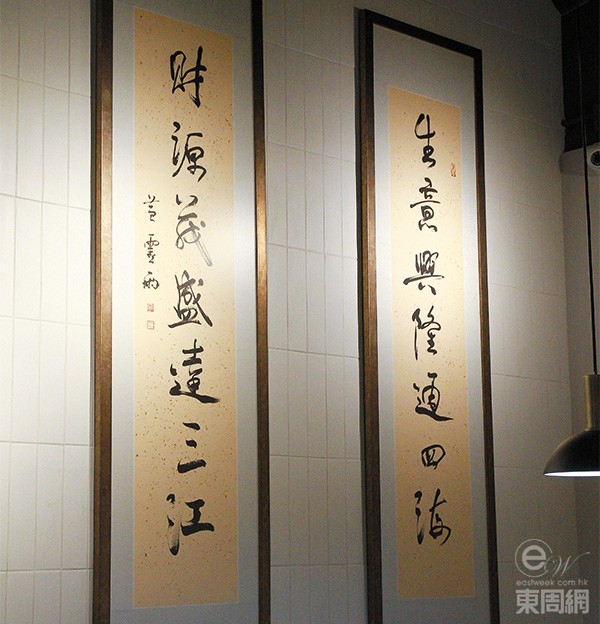 生意興隆通四海
財源茂盛達三江
eastweek.com.hk
東周網